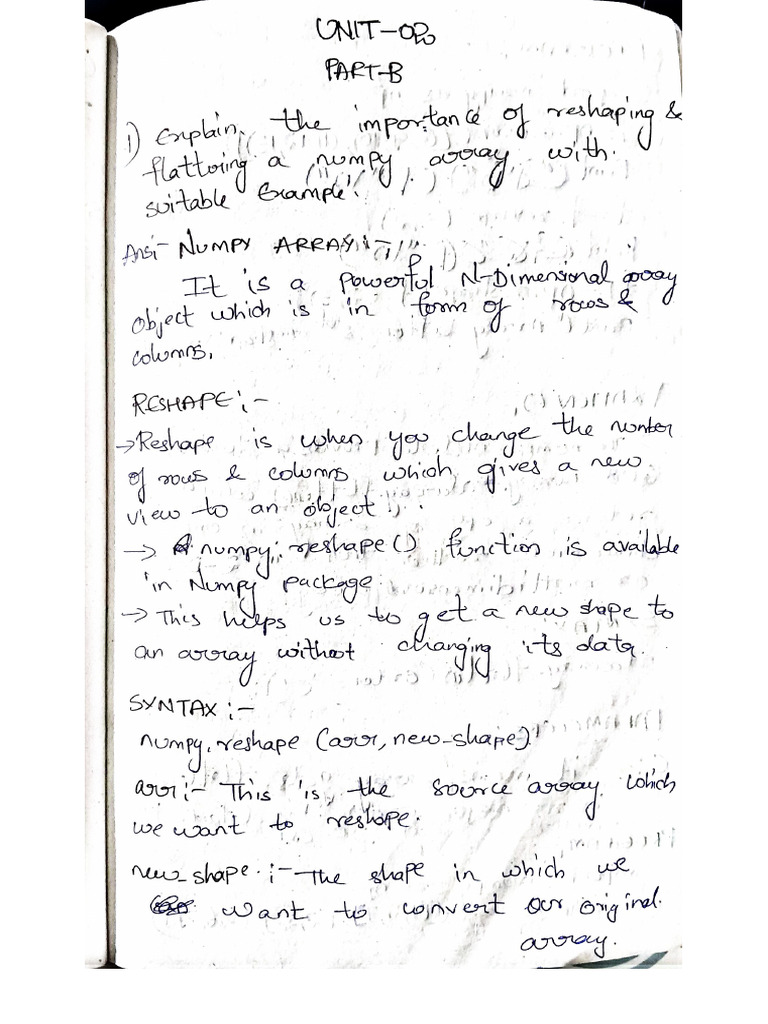 UNIT-02
PART-B
1) Explain the importance of reshaping &
flattring a numpy array with
suitable Example.
Ans:- NUMPY ARRAY:-
It is a powerful N-Dimensional array
object which is in form of rows &
columns.
RESHAPE:-
→ Reshape is when you change the number
of rows & columns which gives a new
view to an object.
→ numpy.reshape() function is available
in Numpy package.
→ This helps us to get a new shape to
an array without changing its data.
SYNTAX:-
numpy.reshape (arr, new_shape)
arr:- This is the source array which
we want to reshape.
new_shape:- The shape in which we
want to convert our original
array.